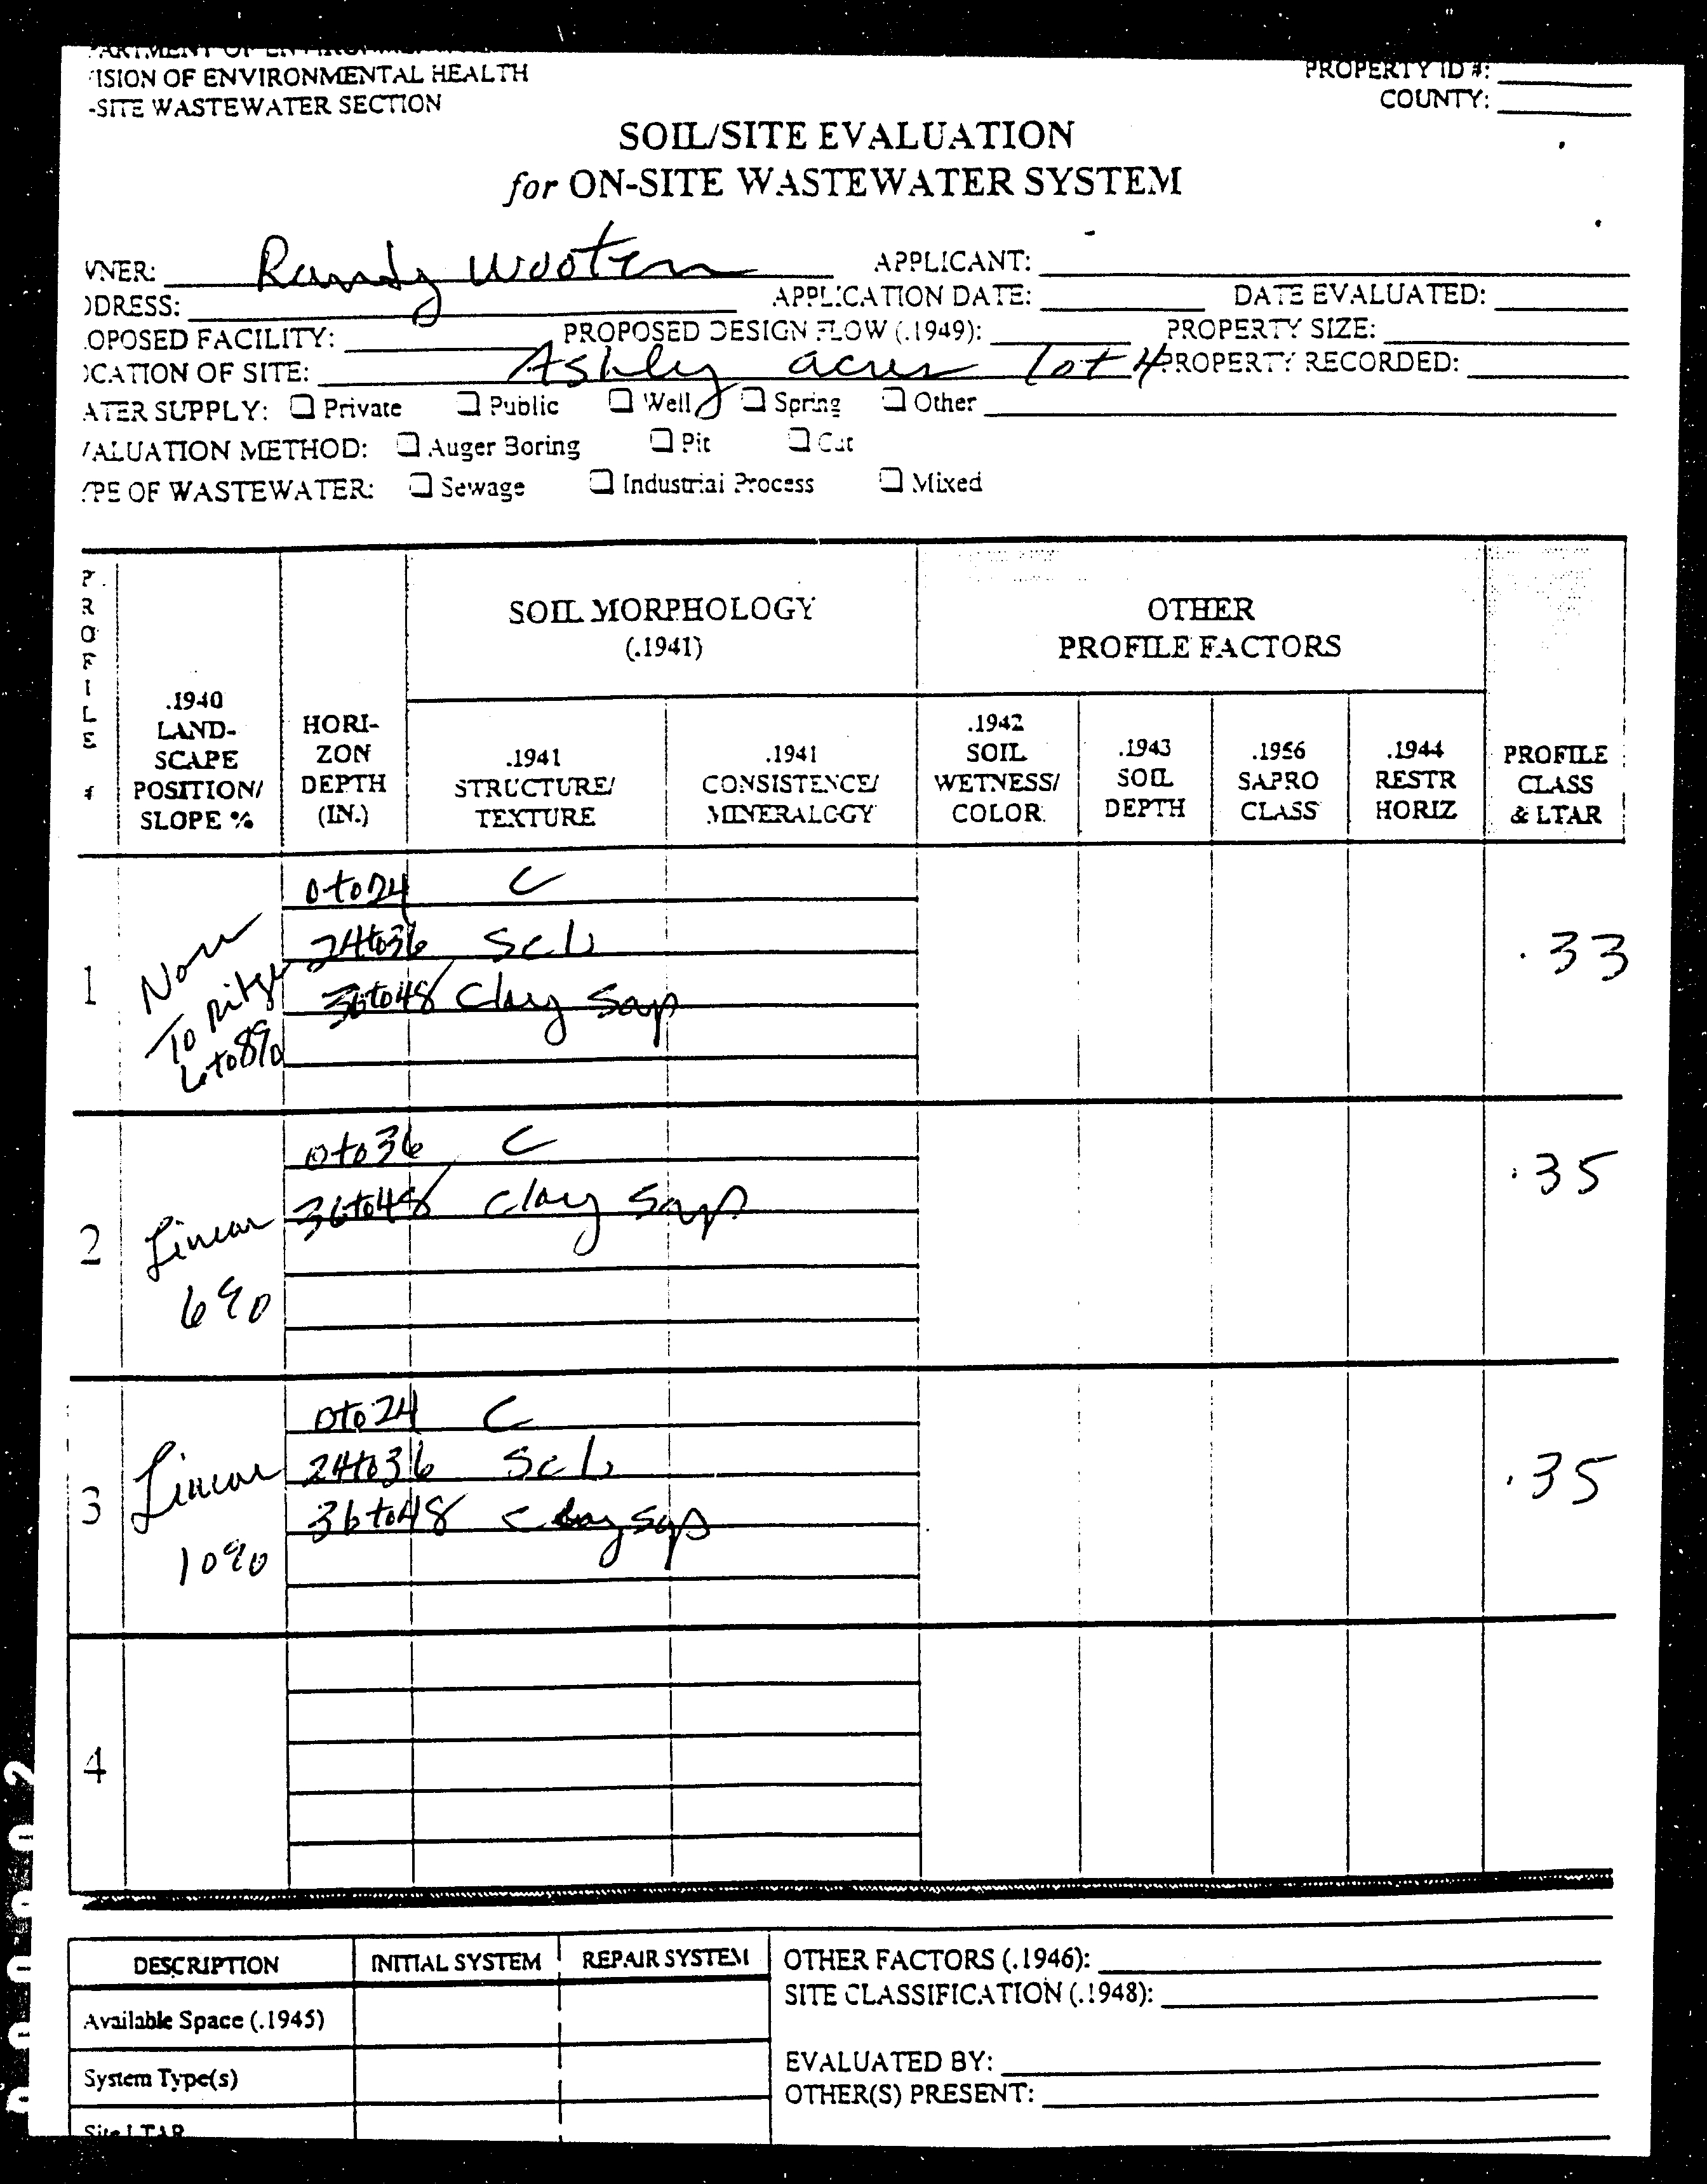 ISION OF ENVIRONMENTAL HEALTH
-SITE WASTEWATER SECTION
PROPERTY ID #:
COUNTY:
SOIL/SITE EVALUATION
for ON-SITE WASTEWATER SYSTEM
WNER: Randy Wooten APPLICANT:
DDRESS: APPLICATION DATE: DATE EVALUATED:
OPOSED FACILITY: PROPOSED DESIGN FLOW (.1949): PROPERTY SIZE:
OCATION OF SITE: Ashley acres lot 4 PROPERTY RECORDED:
ATER SUPPLY: Private Public Well Spring Other
VALUATION METHOD: Auger Boring Pit Cut
YPE OF WASTEWATER: Sewage Industrial Process Mixed
PROFILE #
.1940 LAND-SCAPE POSITION/ SLOPE %
HORI-ZON DEPTH (IN.)
SOIL MORPHOLOGY
(.1941)
.1941 STRUCTURE/ TEXTURE
.1941 CONSISTENCE/ MINERALOGY
OTHER
PROFILE FACTORS
.1942 SOIL WETNESS/ COLOR
.1943 SOIL DEPTH
.1956 SAPRO CLASS
.1944 RESTR HORIZ
PROFILE CLASS & LTAR
1
To
6 to 8%
0 to 24 C
24 to 36 SCL
36 to 48 Clay Sap
.33
2
Linear
6%
0 to 36 C
36 to 48 clay Sap
.35
3
Linear
10%
0 to 24 C
24 to 36 SCL
36 to 48 clay sap
.35
4
DESCRIPTION INITIAL SYSTEM REPAIR SYSTEM
Available Space (.1945)
System Type(s)
Site LTAR
OTHER FACTORS (.1946):
SITE CLASSIFICATION (.1948):
EVALUATED BY:
OTHER(S) PRESENT: